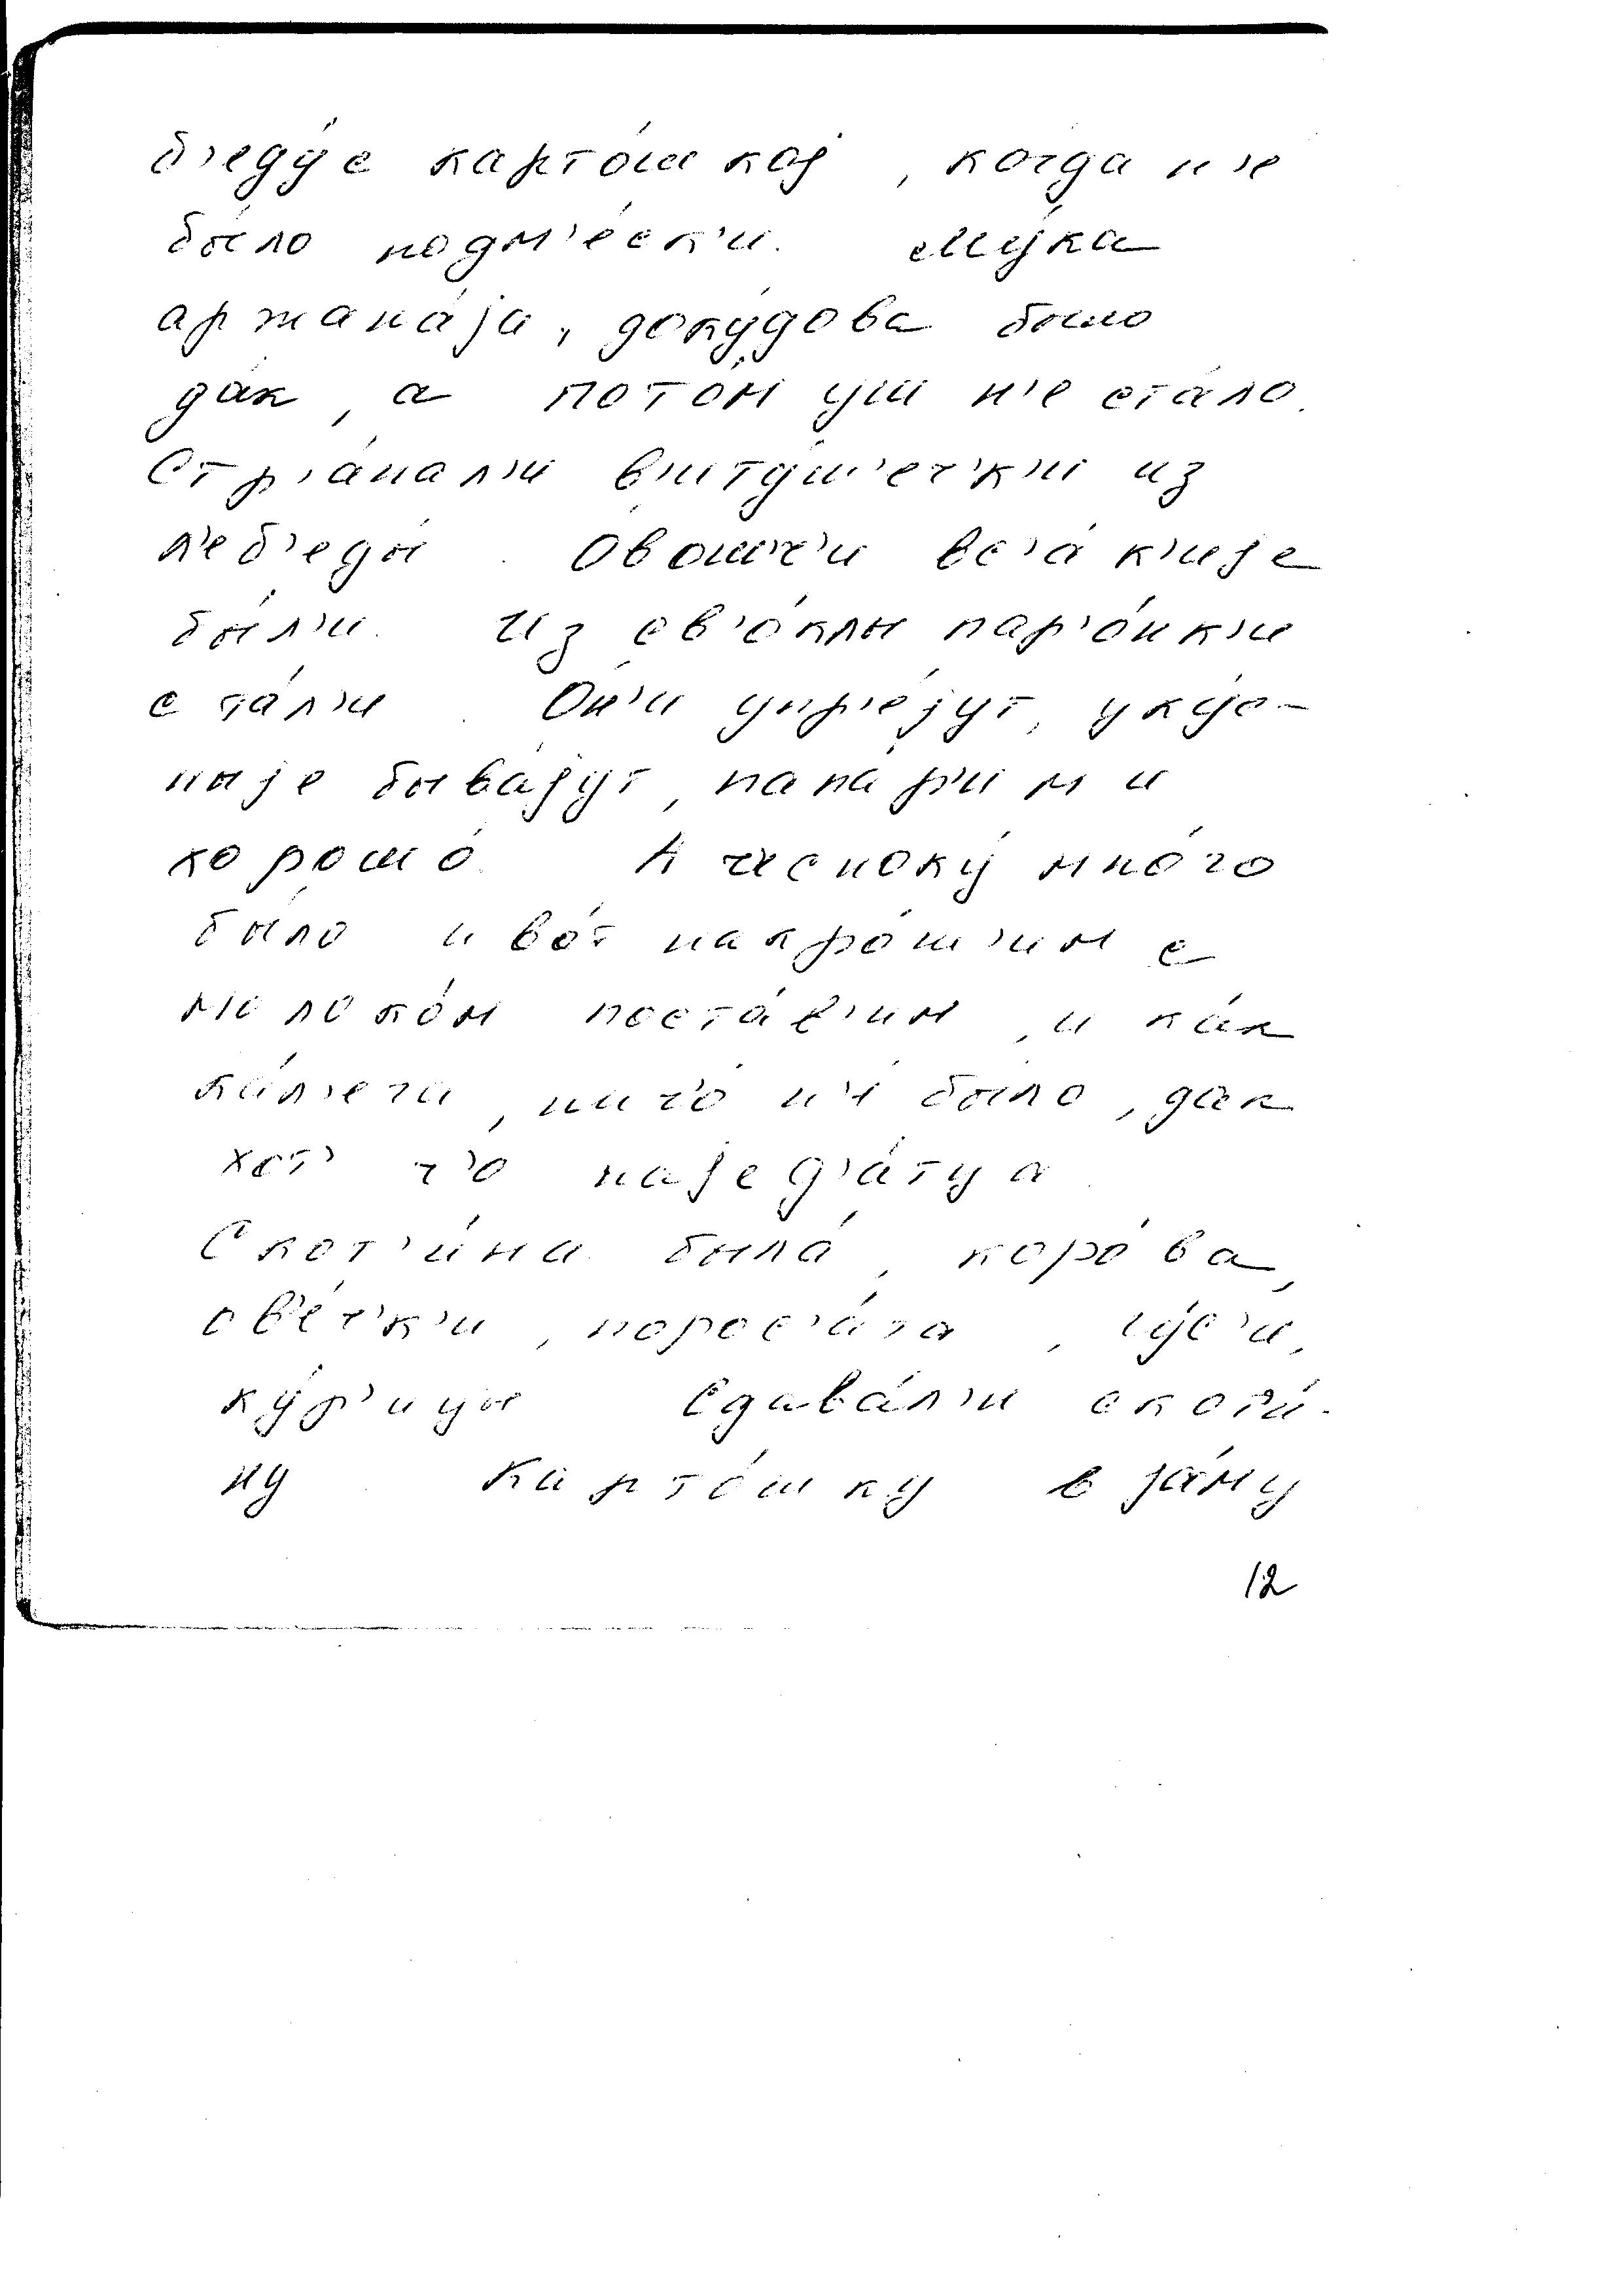 б'еду́ с карто́шкој, когда н'е
бы́ло подм'е́ск'и. Му́ка
аржана́ја, доку́дова было
да́к, а пото́м уш н'е ста́ло.
Стр'а́пал'и в'иту́ш'еч'к'и из
л'еб'еды́. О́вошч'и вс'а́к'ије
бы́л'и. Из св'о́клы пар'о́нк'и
ста́л'и. Он'и упр'е́јут, уку́с-
ныје быва́јут, напа́р'им и
хорошо́. А чесноку́ мно́го
бы́ло и во́т накро́ш'им с
молоко́м поста́в'им, и ка́к
ка́л'ега, нич'о́ н'і бы́ло, дак
хот' ч'о наjед'а́тца.
Скот'и́на была́, коро́ва,
ов'е́ч'к'и, порос'а́та, гу́с'и,
ку́р'ицы. Сдава́л'и скот'и́-
ну. Карто́шку в jа́му
12